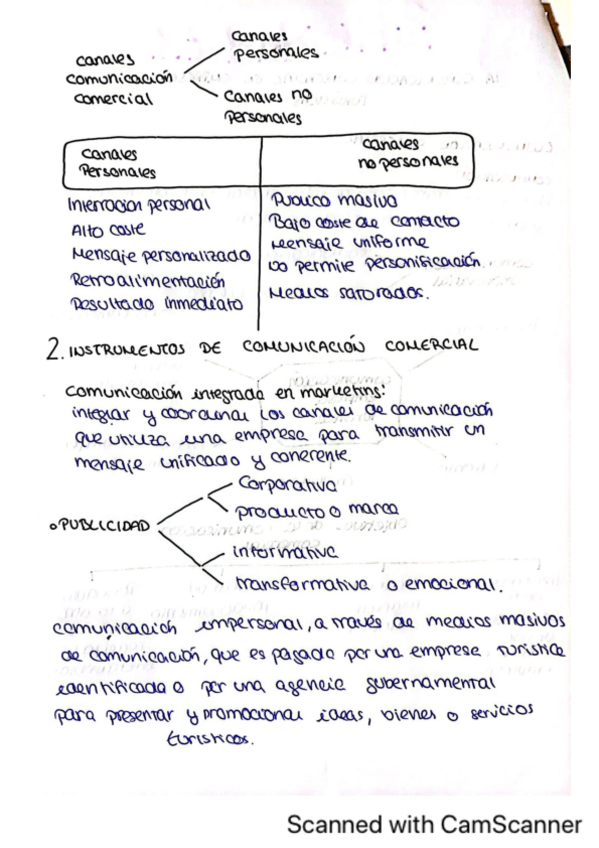 canales
personales.
canales
comunicación
comercial
Canales no
personales
Canales
Personales
canales
no personales
Interracion personal
Alto coste
Mensaje personalizado
Retroalimentación
Resultado inmediato
Publico masivo
Bajo coste de contacto
Mensaje uniforme
No permite personificación.
Medios saturados.
2. INSTRUMENTOS DE COMUNICACIÓN COMERCIAL
comunicación integrada en marketing:
integrar y coordinar los canales de comunicación
que utiliza una empresa para transmitir un
mensaje unificado y coherente.
Corporativa
producto o marca
o PUBLICIDAD
informativa
transformativa o emocional.
comunicación impersonal, a través de medios masivos
de comunicación, que es pagada por una empresa turística
identificada o por una agencia gubernamental
para presentar y promocionar ideas, bienes o servicios
turísticos.
Scanned with CamScanner